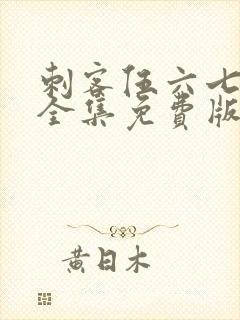 刺客伍六七
全集免费版
黄日木